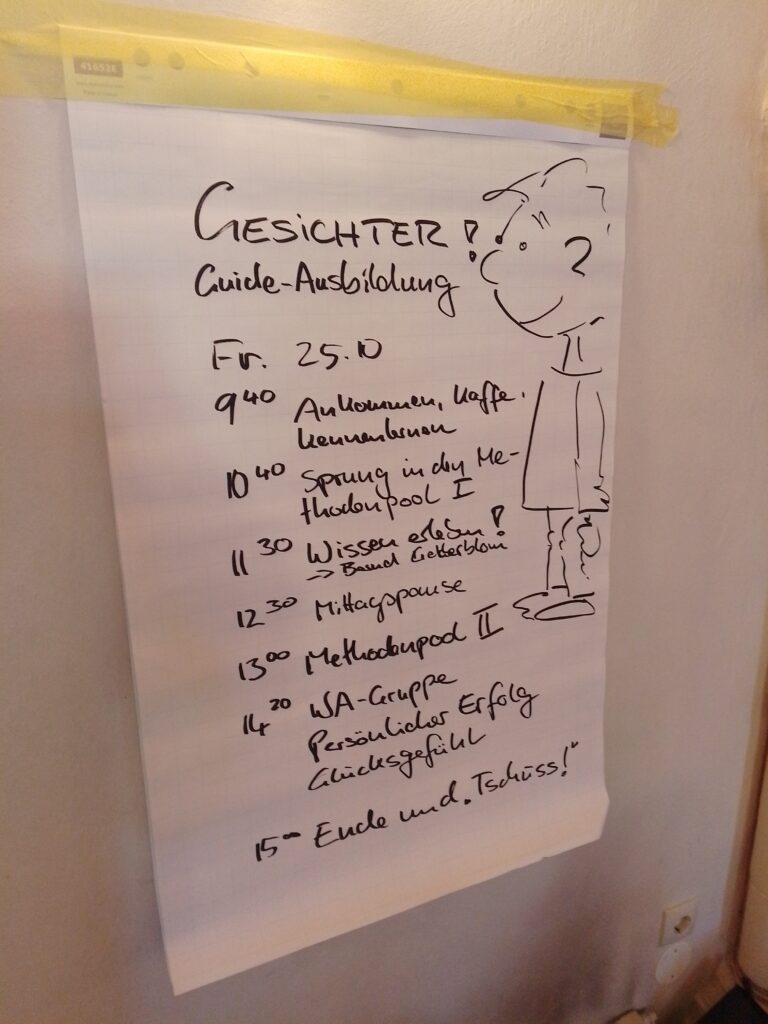 41652E
GESICHTER!
Guide-Ausbildung
Fr. 25.10
9⁴⁰ Ankommen, Kaffe,
kennenlernen
10⁴⁰ Sprung in den Me-
thodenpool I
11³⁰ Wissen erleben!
→ Bernd
12³⁰ Mittagspause
13⁰⁰ Methodenpool II
14²⁰ WA-Gruppe
Persönlicher Erfolg
Glücksgefühl
15⁰⁰ Ende und „Tschüss!"